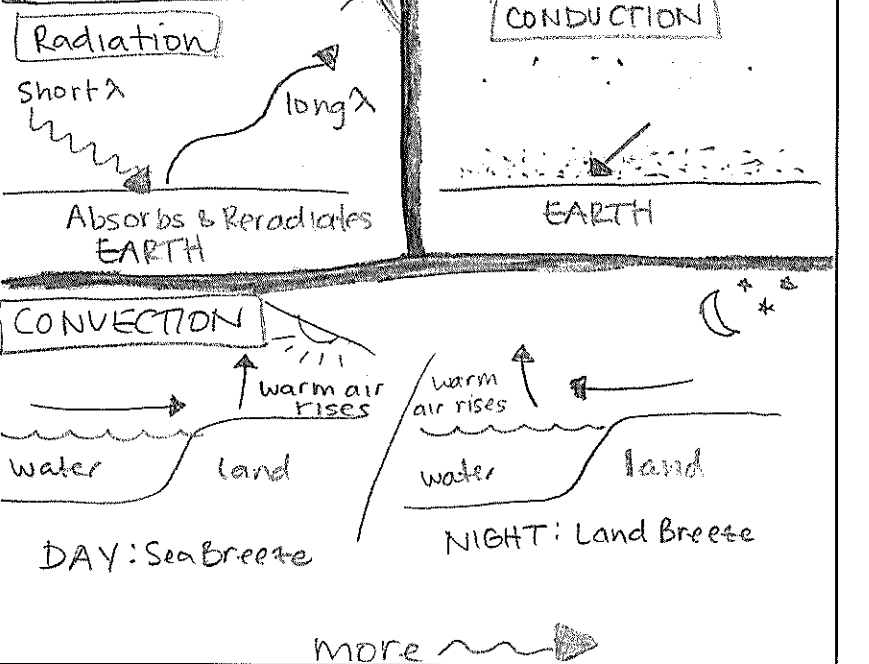 Radiation
Short λ
long λ
Absorbs & Reradiates
EARTH
CONDUCTION
EARTH
CONVECTION
warm air
rises
water
land
DAY: Sea Breeze
warm
air rises
water
land
NIGHT: Land Breeze
more